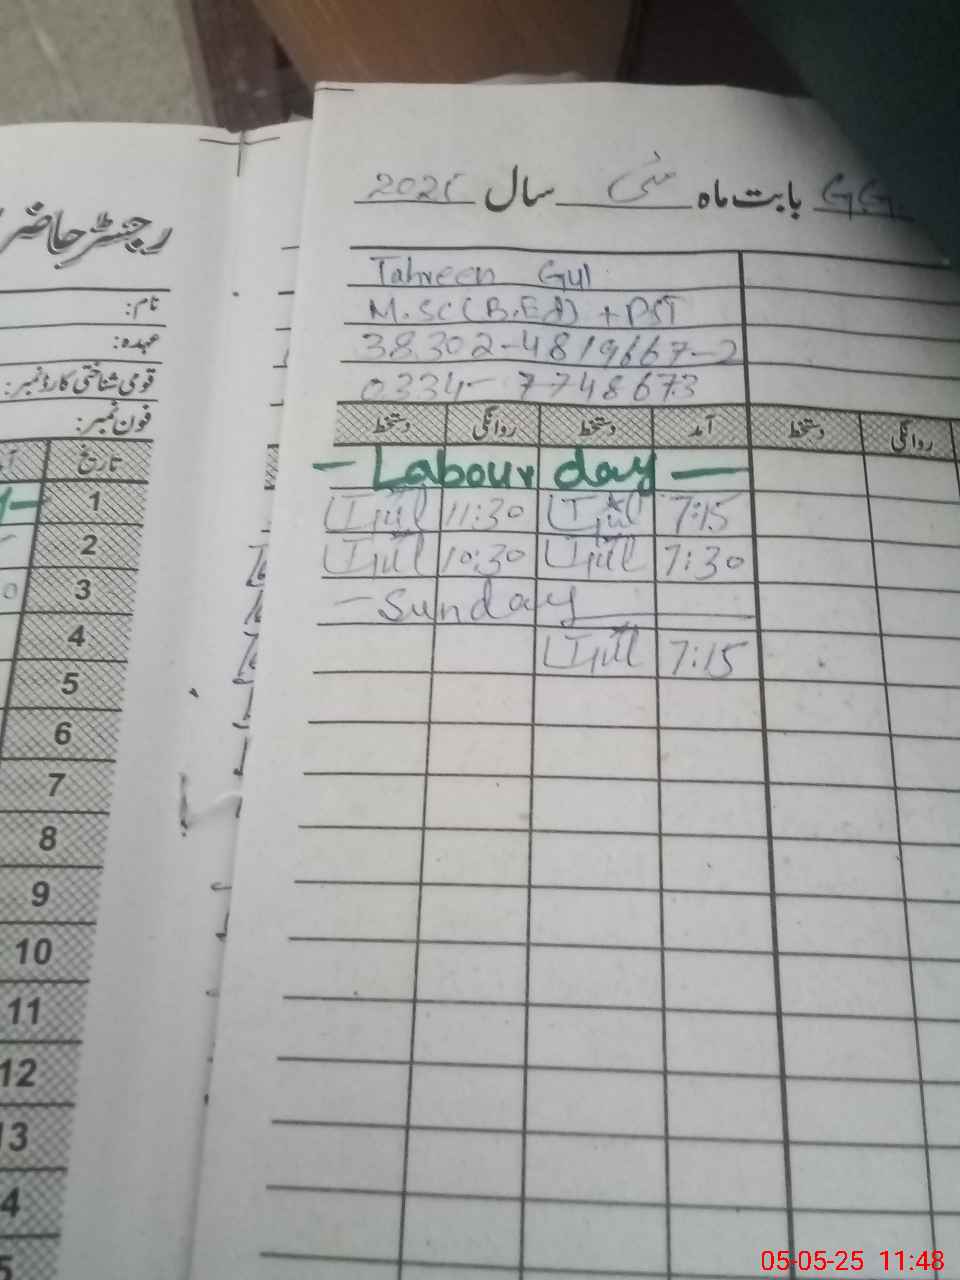 رجسٹر حاضر
نام:
عہدہ:
قومی شناختی کارڈ نمبر:
فون نمبر:
تاریخ
1
2
3
4
5
6
7
8
9
10
11
12
13
بابت ماہ مئی سال 2025
Tahreen Gul
M.SC(B.Ed) + PST
38302-4819667-2
0334-7748673
آمد دستخط روانگی دستخط
روانگی دستخط
- Labour day -
TGull 11:30 TGull 7:15
TGull 10:30 TGull 7:30
- Sunday
TGull 7:15
05-05-25 11:48